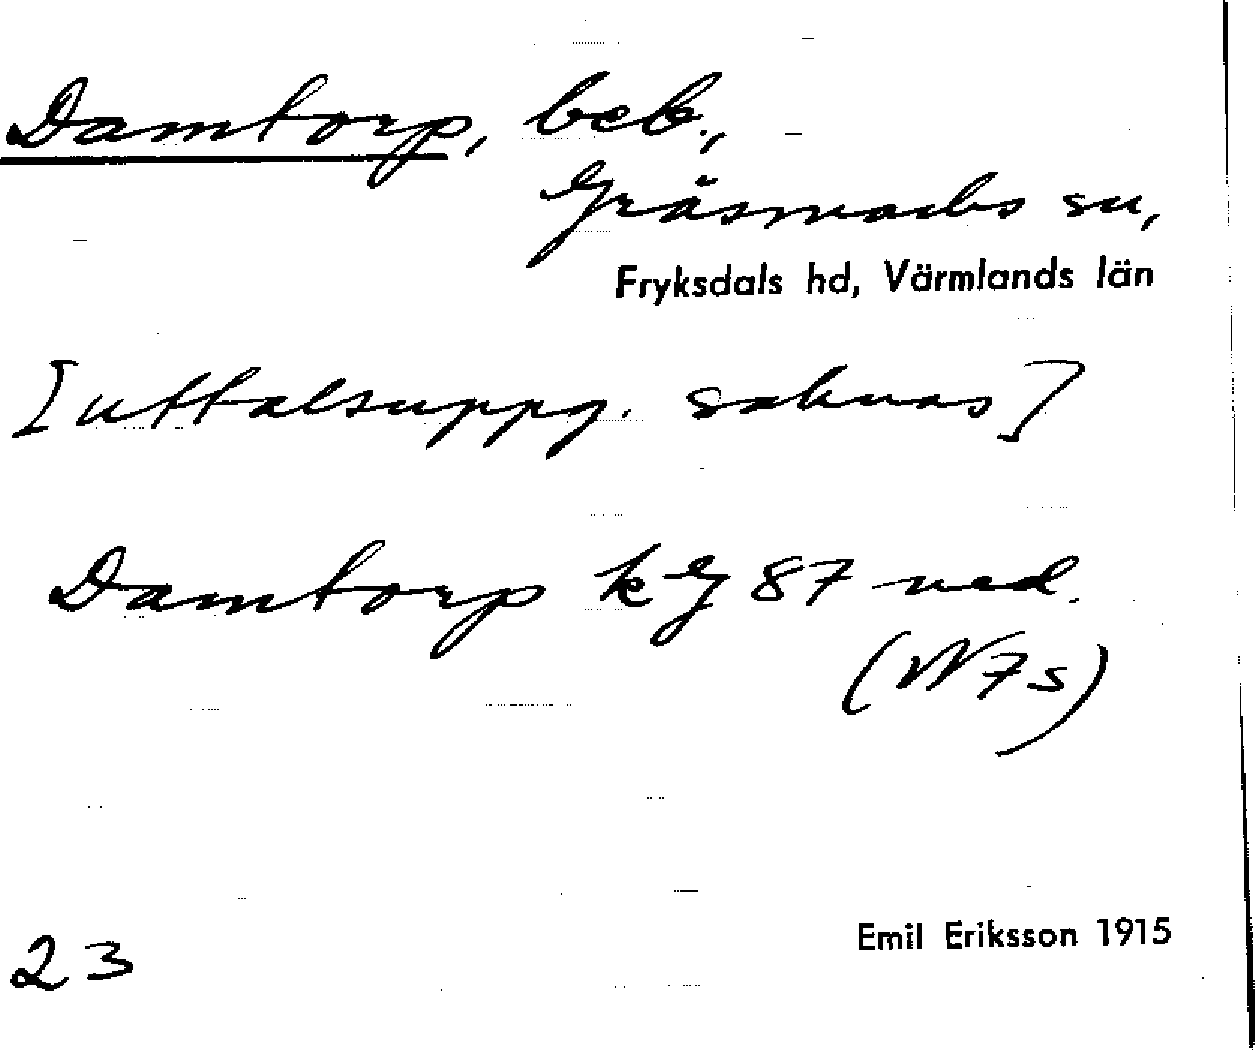 Damtorp, beb.,
Gräsmarks sn,
Fryksdals hd, Värmlands län
[uttalsuppg. saknas]
Damtorp kG 87 ned.
(W7s)
23
Emil Eriksson 1915